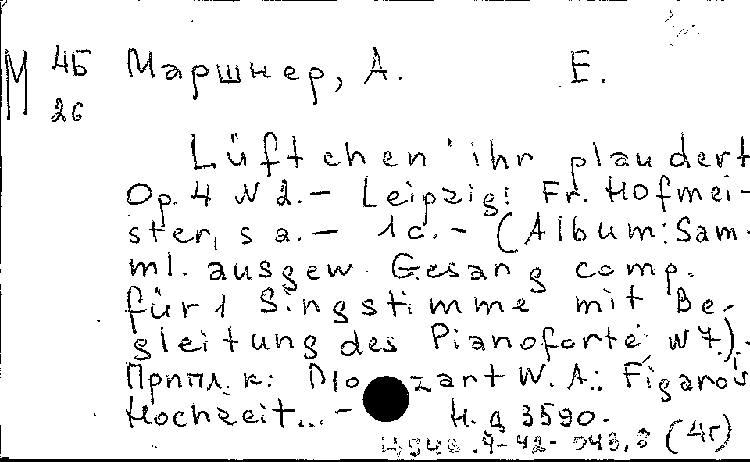 М 4Б Маршнер, А. Е.
26
Lüftchen ihr plaudert
Op. 4 N 2. – Leipzig: Fr. Hofmei-
ster, s a. – 1 c. – (Album: Sam-
ml. ausgew. Gesang comp.
für 1 Singstimme mit Be-
gleitung des Pianoforte N 7.).
Припл. к: Mozart W. A.: Figaro's
Hochzeit... – Н. д 3590.
(4г)